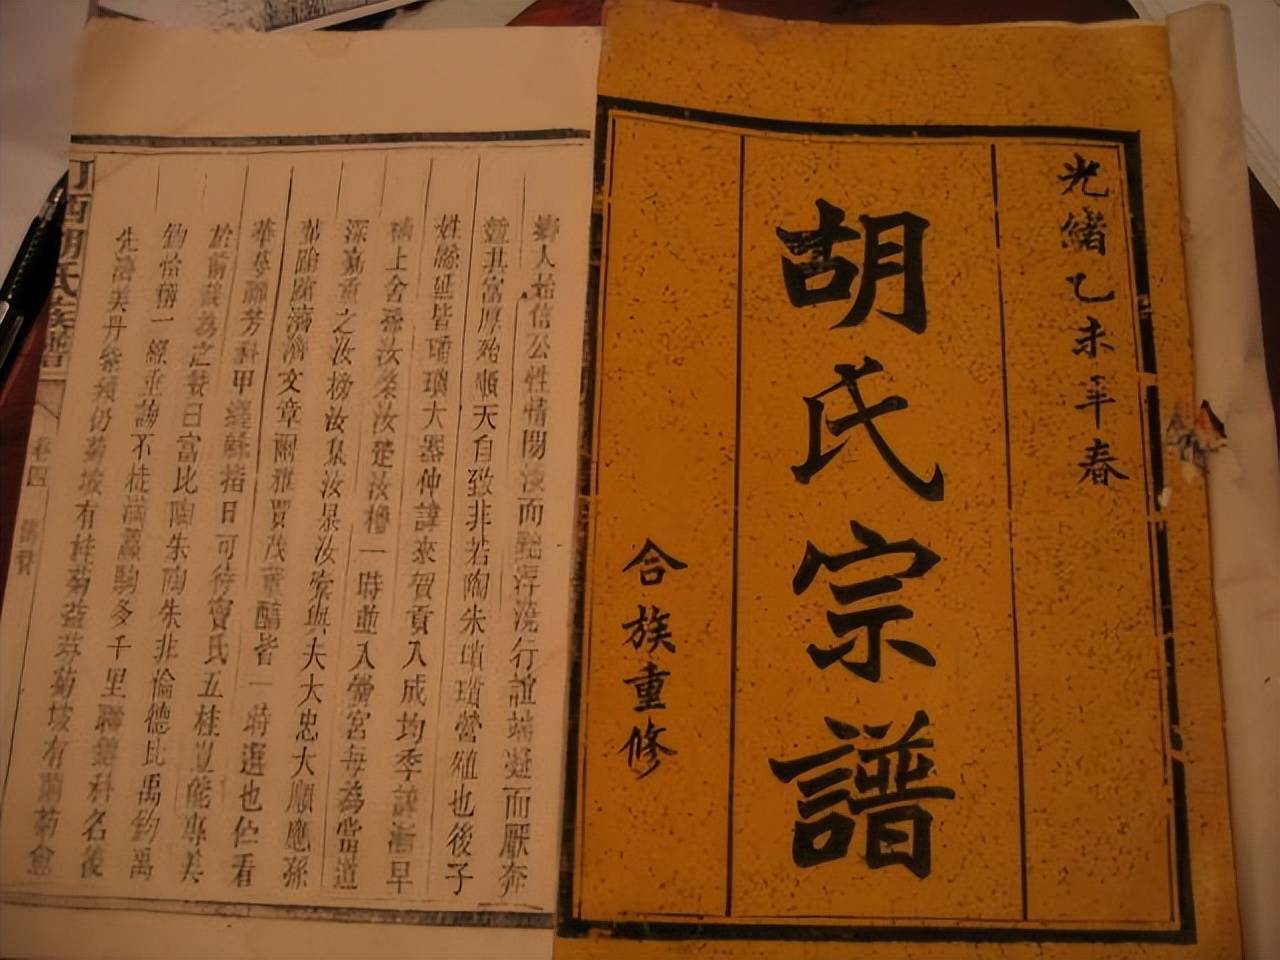 光緒乙未年春
胡氏宗譜
合族重修
人始信公性情閒淡而 淳澆行誼端凝而厭奔
其富厚殆順天自致非若陶朱瑣瑣營殖也後子
姓 延皆瑚璉大器仲諱來賀貢入成均季諱 早
上舍孫汝 汝楚汝櫓一時並入黌宮每為當道
深嘉重之汝榜汝集汝杲汝 與夫大忠大順應孫
濟濟文章爾雅賈茂董醇皆一時選也佇看
聯芳科甲 指日可待竇氏五桂豈能專美
於前哉為之贊曰富比陶朱陶朱非倫德比禹鈞禹
鈞恰稱一經並 不 滿 駒多千里聯 科名後
先濟美丹 頻仍菊坡有桂菊益芬菊坡有蘭菊愈
西胡氏族譜
卷四